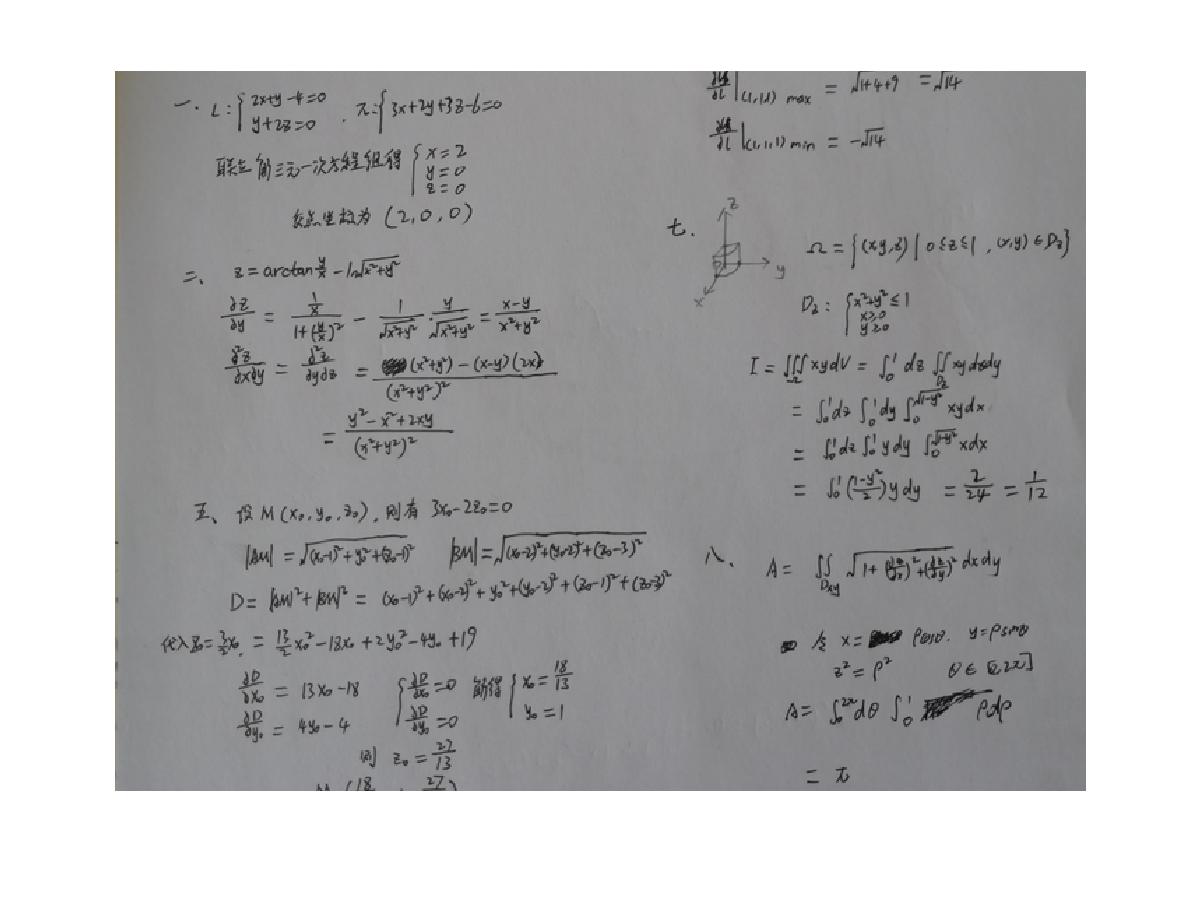 一. L:{2x+y-4=0 y+2z=0 , π:{3x+2y+3z-6=0
联立解三元一次方程组得 {x=2 y=0 z=0
交点坐标为 (2,0,0)
二、 z=arctan y/x - ln√(x²+y²)
∂z/∂y = (1/x)/(1+(y/x)²) - 1/√(x²+y²) · y/√(x²+y²) = (x-y)/(x²+y²)
∂²z/∂x∂y = ∂²z/∂y∂z = ((x²+y²)-(x-y)(2x))/(x²+y²)²
= (y²-x²+2xy)/(x²+y²)²
五、 设M(x₀,y₀,z₀), 则有 3x₀-2z₀=0
|AM| = √((x₀-1)²+y₀²+(z₀-1)²) |BM| = √((x₀-2)²+(y₀-2)²+(z₀-3)²)
D = |AM|²+|BM|² = (x₀-1)²+(x₀-2)²+y₀²+(y₀-2)²+(z₀-1)²+(z₀-3)²
代入z₀=3/2x₀, = 13/2 x₀²-18x₀+2y₀²-4y₀+19
∂D/∂x₀ = 13x₀-18 {∂D/∂x₀=0 ∂D/∂y₀=0 解得 {x₀=18/13 y₀=1
∂D/∂y₀ = 4y₀-4
则 z₀ = 27/13
∂l|(1,1,1) max = √(1+4+9) = √14
∂l|(1,1,1) min = -√14
七. z y x Ω = {(x,y,z) | 0≤z≤1, (x,y)∈Dz}
Dz: {x²+y²≤1 x≥0 y≥0
I = ∭Ω xydV = ∫₀¹ dz ∬Dz xydxdy
= ∫₀¹dz ∫₀¹dy ∫₀^√(1-y²) xydx
= ∫₀¹dz ∫₀¹ydy ∫₀^√(1-y²) xdx
= ∫₀¹((1-y²)/2)ydy = 2/24 = 1/12
八、 A = ∬Dxy √(1+(∂z/∂x)²+(∂z/∂y)²) dxdy
令 x= ρcosθ. y=ρsinθ
z²=ρ² θ∈[0,2π]
A = ∫₀^2π dθ ∫₀¹ ρdρ
= π